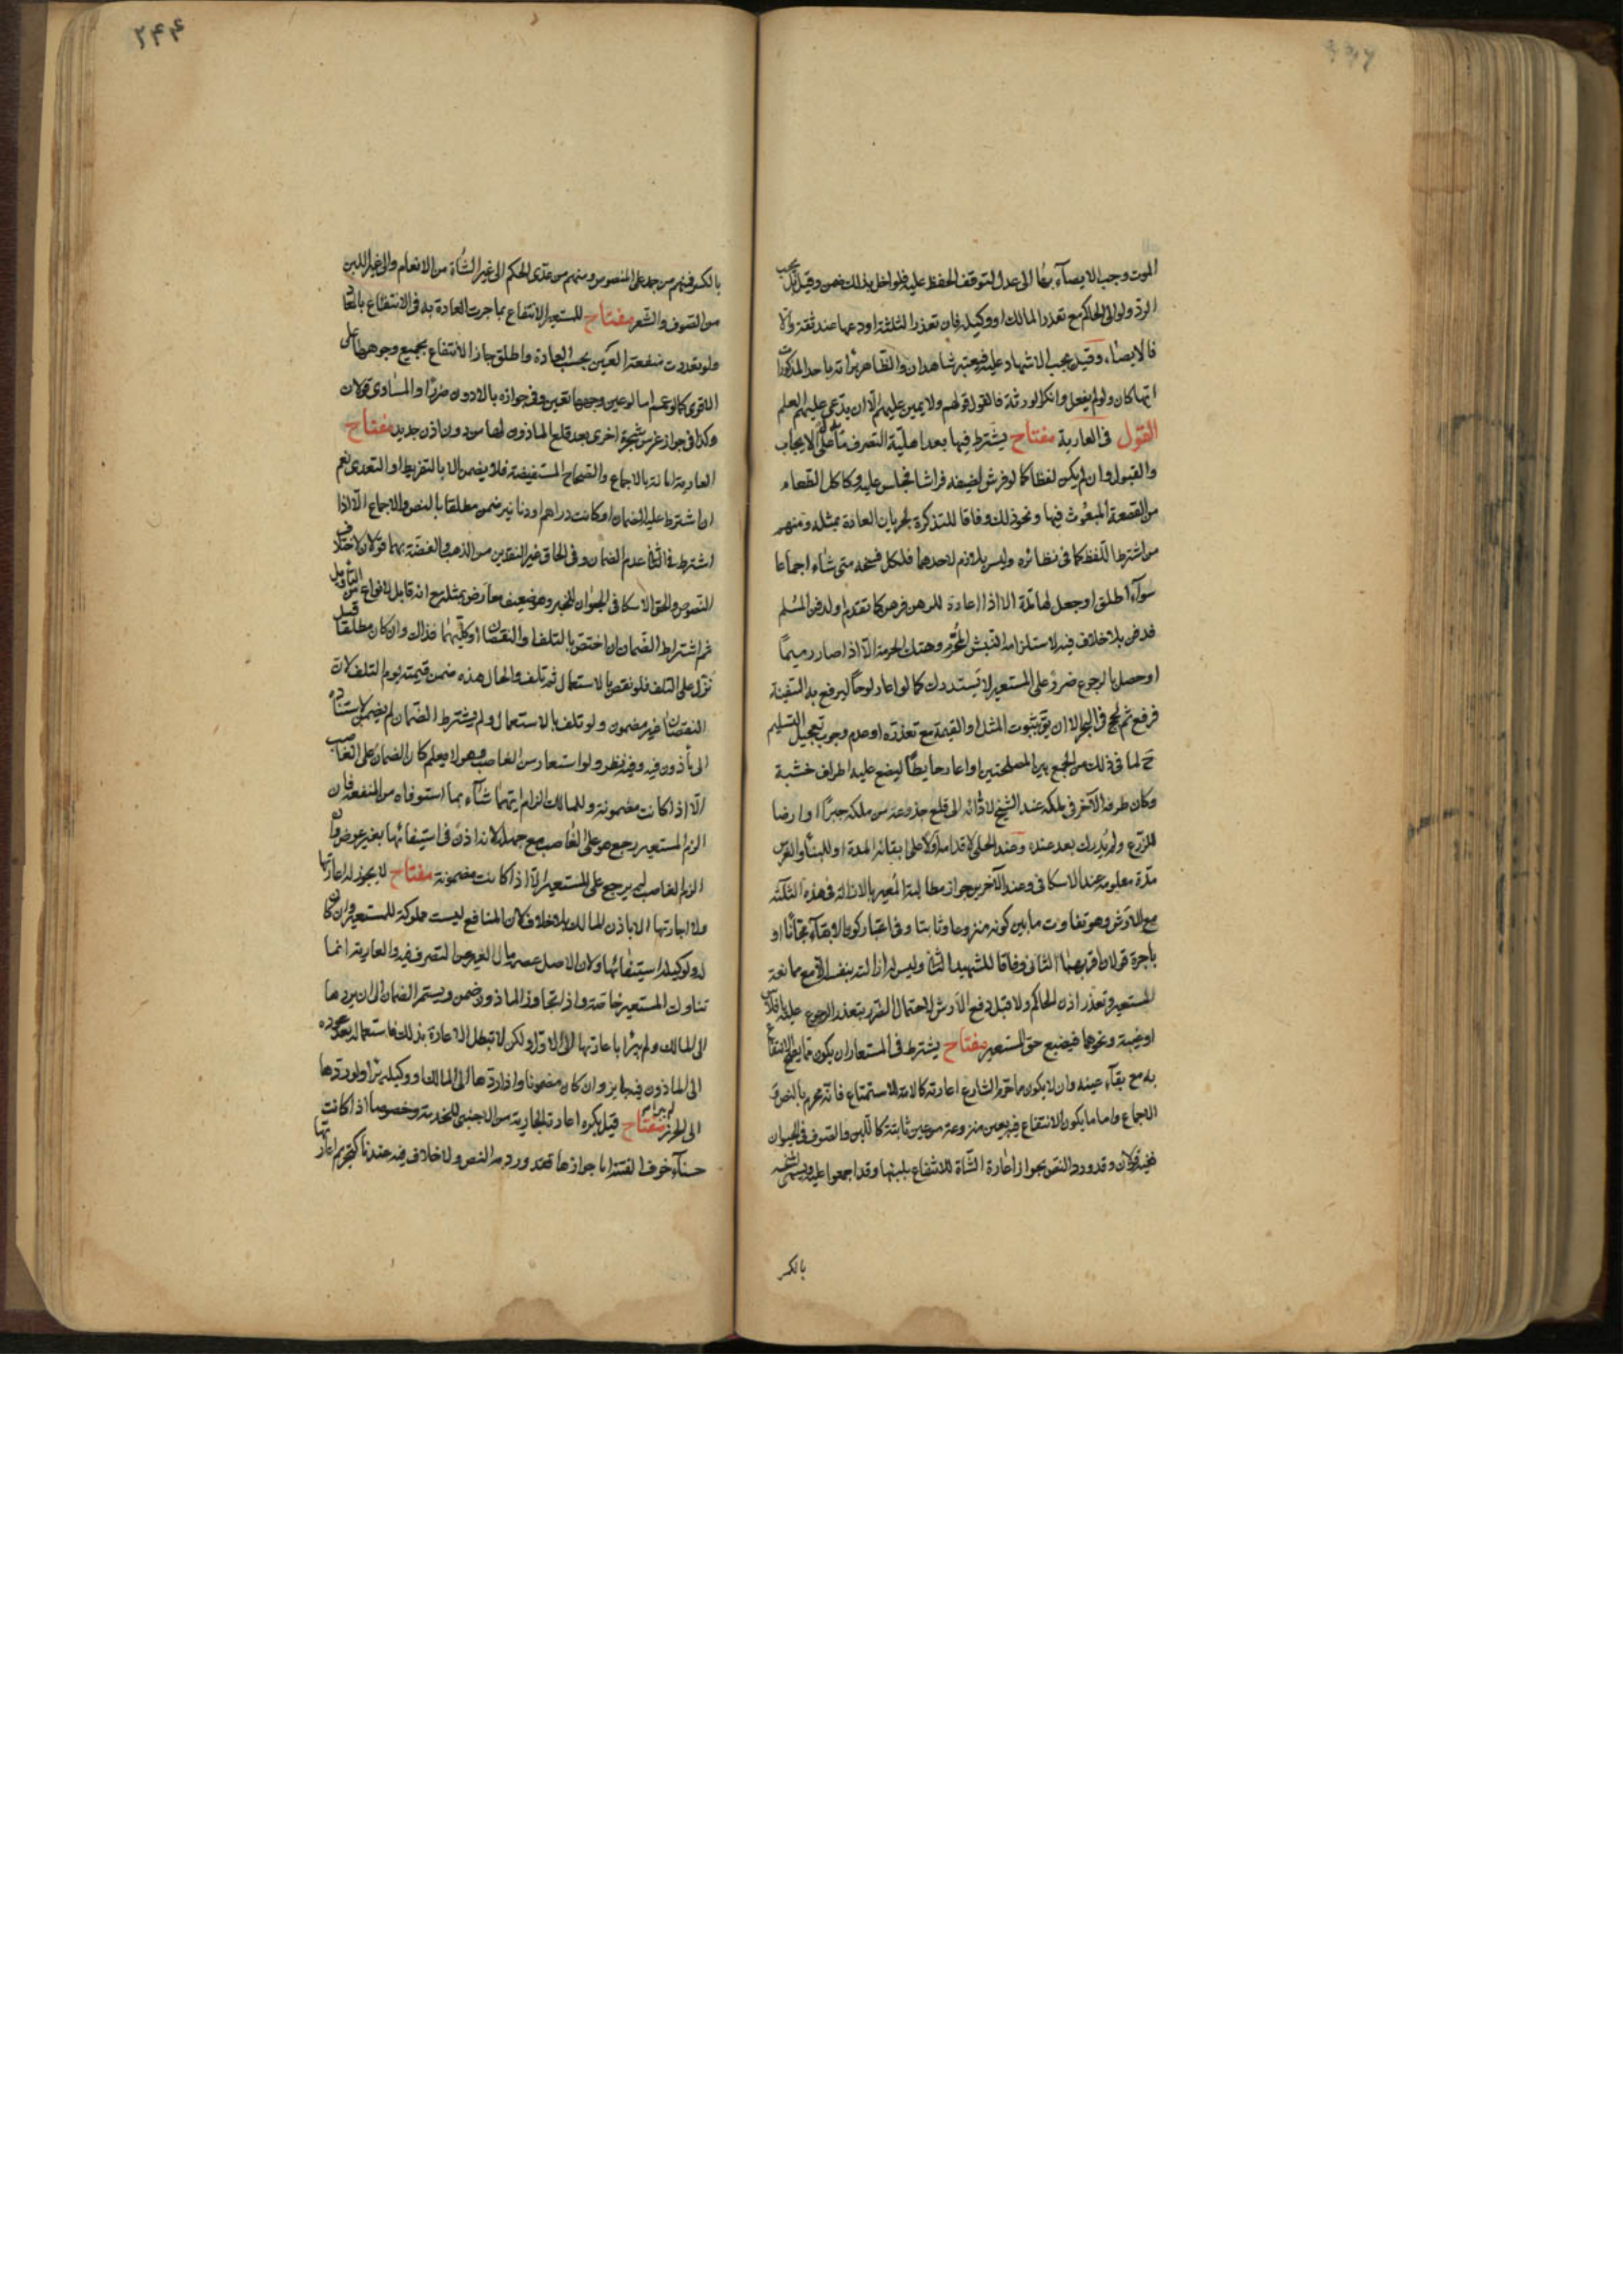 الموت وجب الايصاء بها الى عدل لتوقف الحفظ عليه فلو اخل بذلك ضمن وقيل بل يجب
الرد ولو الى الحاكم مع تعذر المالك او وكيله فان تعذر الثلثة اودعها عند ثقة والا
فالايصاء وقيل يجب الاشهاد عليه فيعتبر شاهدان والظاهر براته باحد المذكورات
ايها كان ولو لم يفعل وانكر الورثة فالقول قولهم ولا يمين عليهم الا ان يدعى عليهم العلم
القول فى العارية مفتاح يشترط فيها بعد اهلية التصرف ما دل على الايجاب
والقبول وان لم يكن لفظا كما لو فرش لضيفه فراشا فجلس عليه وكاكل الطعام
من القصعة المبعوث فيها ونحو ذلك وفاقا للتذكرة لجريان العادة بمثله ومنهم
من اشترط اللفظ كما فى نظائره وليس بلازم لاحدهما فلكل فسخه متى شاء اجماعا
سواء اطلق او جعل لها مدة الا اذا اعاره للرهن فرهن كما تقدم او لدفن المسلم
فدفن بلا خلاف فيه لاستلزامه النبش المحرم وهتك الحرمة الا اذا صار رميما
او حصل بالرجوع ضرر على المستعير لا يستدرك كما لو اعار لوحا ليرفع به السفينة
فرقع ثم لجج فى البحر الا ان يق بثبوت المثل او القيمة مع تعذره او عدم وجوب تعجيل التسليم
ح لما فى ذلك من الجمع بين المصلحتين او اعار حايطا ليضع عليه اطراف خشبة
وكان طرفه الآخر فى ملكه عند الشيخ لادائه الى قلع جذوعه من ملكه جبرا او ارضا
للزرع ولم يدرك بعد عنده وعند الحلى لاقدامه اولا على ابقائه المدة او للبناء والغرس
مدة معلومة عند الاسكافى وعند الآخرين جواز مطالبة المعير بالازالة فى هذه الثلثة
مع الارش وهو تفاوت ما بين كونه منزوعا وثابتا وفى اعتبار كون الابقاء مجانا او
باجرة قولان اقربهما الثانى وفاقا للشهيد الثانى وليس له ازالته بنفسه الا مع ممانعة
المستعير وتعذر اذن الحاكم ولا قبل دفع الارش لاحتمال الضرر بتعذر الرجوع عليه بافلاس
او غيبة ونحوهما فيضيع حق المستعير مفتاح يشترط فى المستعار ان يكون مما يصح الانتفاع
به مع بقاء عينه وان لا يكون مما حرم الشارع اعارته كالامة للاستمتاع فانه محرم بالنص و
الاجماع واما ما يكون الانتفاع فيه بعين منزوعة من عين ثابتة كاللبن والصوف فى الحيوان
ففيه قولان وقد ورد النص بجواز اعارة الشاة للانتفاع بلبنها وقد اجمعوا عليه ويسمى منحة
بالكسر
بالكسر فمنهم من جمد على المنصوص ومنهم من عدى الحكم الى غير الشاة من الانعام والى غير اللبن
من الصوف والشعر مفتاح للمستعير الانتفاع بما جرت العادة به فى الانتفاع بالمعار
ولو تعددت منفعة العين بحسب العادة واطلق جاز الانتفاع بجميع وجوهها على
الاقوى كما لو عمم اما لو عين وجها تعين وفى جوازه بالادون ضررا والمساوى قولان
وكذا فى جواز غرس شجرة اخرى بعد قلع الماذون لها من دون اذن جديد مفتاح
العارية امانة بالاجماع والصحاح المستفيضة فلا يضمن الا بالتفريط او التعدى نعم
ان اشترط عليه الضمان او كانت دراهم او دنانير ضمن مطلقا بالنص والاجماع الا اذا
اشترط فى الثانى عدم الضمان وفى الحاق غير النقدين من الذهب والفضة بهما قولان لاختلاف
النصوص والحق الاسكافى الحيوان للخبر وهو ضعيف معارض بمثله مع انه قابل لانواع من التاويل
ثم اشتراط الضمان ان اختص بالتلف او النقصان او كليهما فذاك وان كان مطلقا قيل
نزل على التلف فلو نقص بالاستعمال ثم تلف والحال هذه ضمن قيمته يوم التلف لان
النقصان غير مضمون ولو تلف بالاستعمال ولم يشترط الضمان لم يضمن لاستناده
الى ماذون فيه وفيه نظر ولو استعار من الغاصب وهو لا يعلم كان الضمان على الغاصب
الا اذا كانت مضمونة وللمالك الزام ايهما شاء بما استوفاه من المنفعة فان
الزم المستعير رجع هو على الغاصب مع جهله لانه اذن فى استيفائها بغير عوض وان
الزم الغاصب لم يرجع على المستعير الا اذا كانت مضمونة مفتاح لا يجوز له اعارتها
ولا اجارتها الا باذن المالك بلا خلاف لان المنافع ليست مملوكة للمستعير وان كان
له ولوكيله استيفائها ولان الاصل عصمة مال الغير من التصرف فيه والعارية انما
تناولت المستعير خاصة واذا تجاوز الماذون ضمن ويستمر الضمان الى ان يردها
الى المالك ولم يبرأ باعادتها الى الاول ولكن لا تبطل الاعارة بذلك فاستعماله بعد عوده
الى الماذون فيه جايز وان كان مضمونا واذا ردها الى المالك او وكيله برأ ولو ردها
الى الحرز لم يبرأ مفتاح قيل يكره اعارة الجارية من الاجنبى للخدمة وخصوصا اذا كانت
حسناء خوف الفتنة اما جوازها فقد ورد به النص ولا خلاف فيه عندنا كتحريم اعارتها